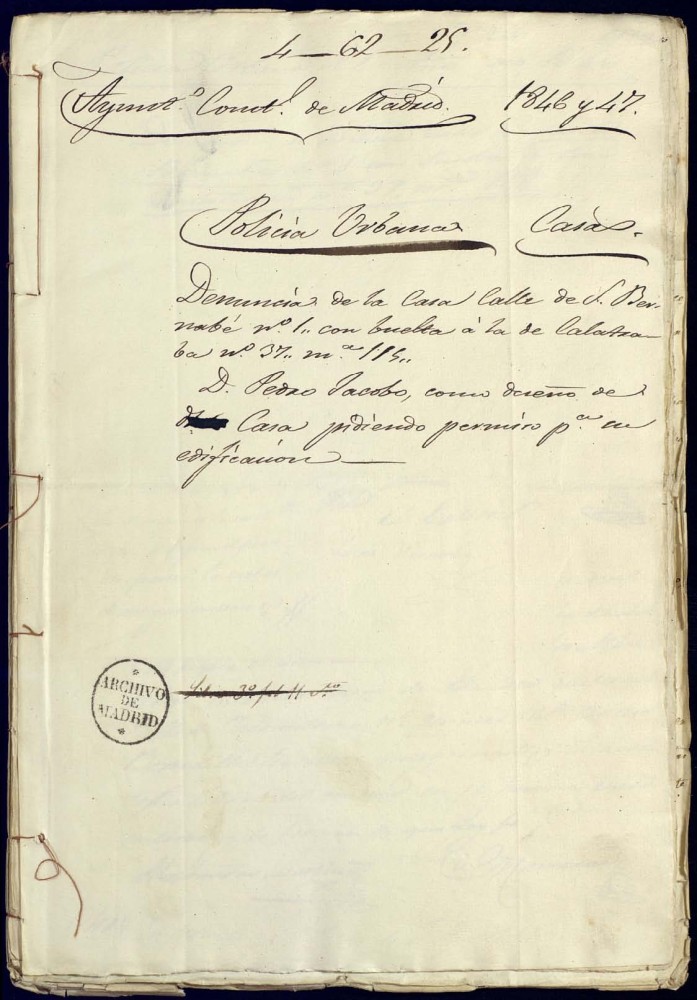 4—62—25.
Ayuntº. Constl. de Madrid. 1846 y 47.
Policia Urbana Casas.
Denuncia de la Casa Calle de S. Ber-
nabé nº 1,, con buelta á la de Calatra-
ba nº 37,, m.ª 115,,
D. Pedro Jacobo, como dueño de
Casa pidiendo permiso p.ª su
edificacion—
ARCHIVO
DE
MADRID